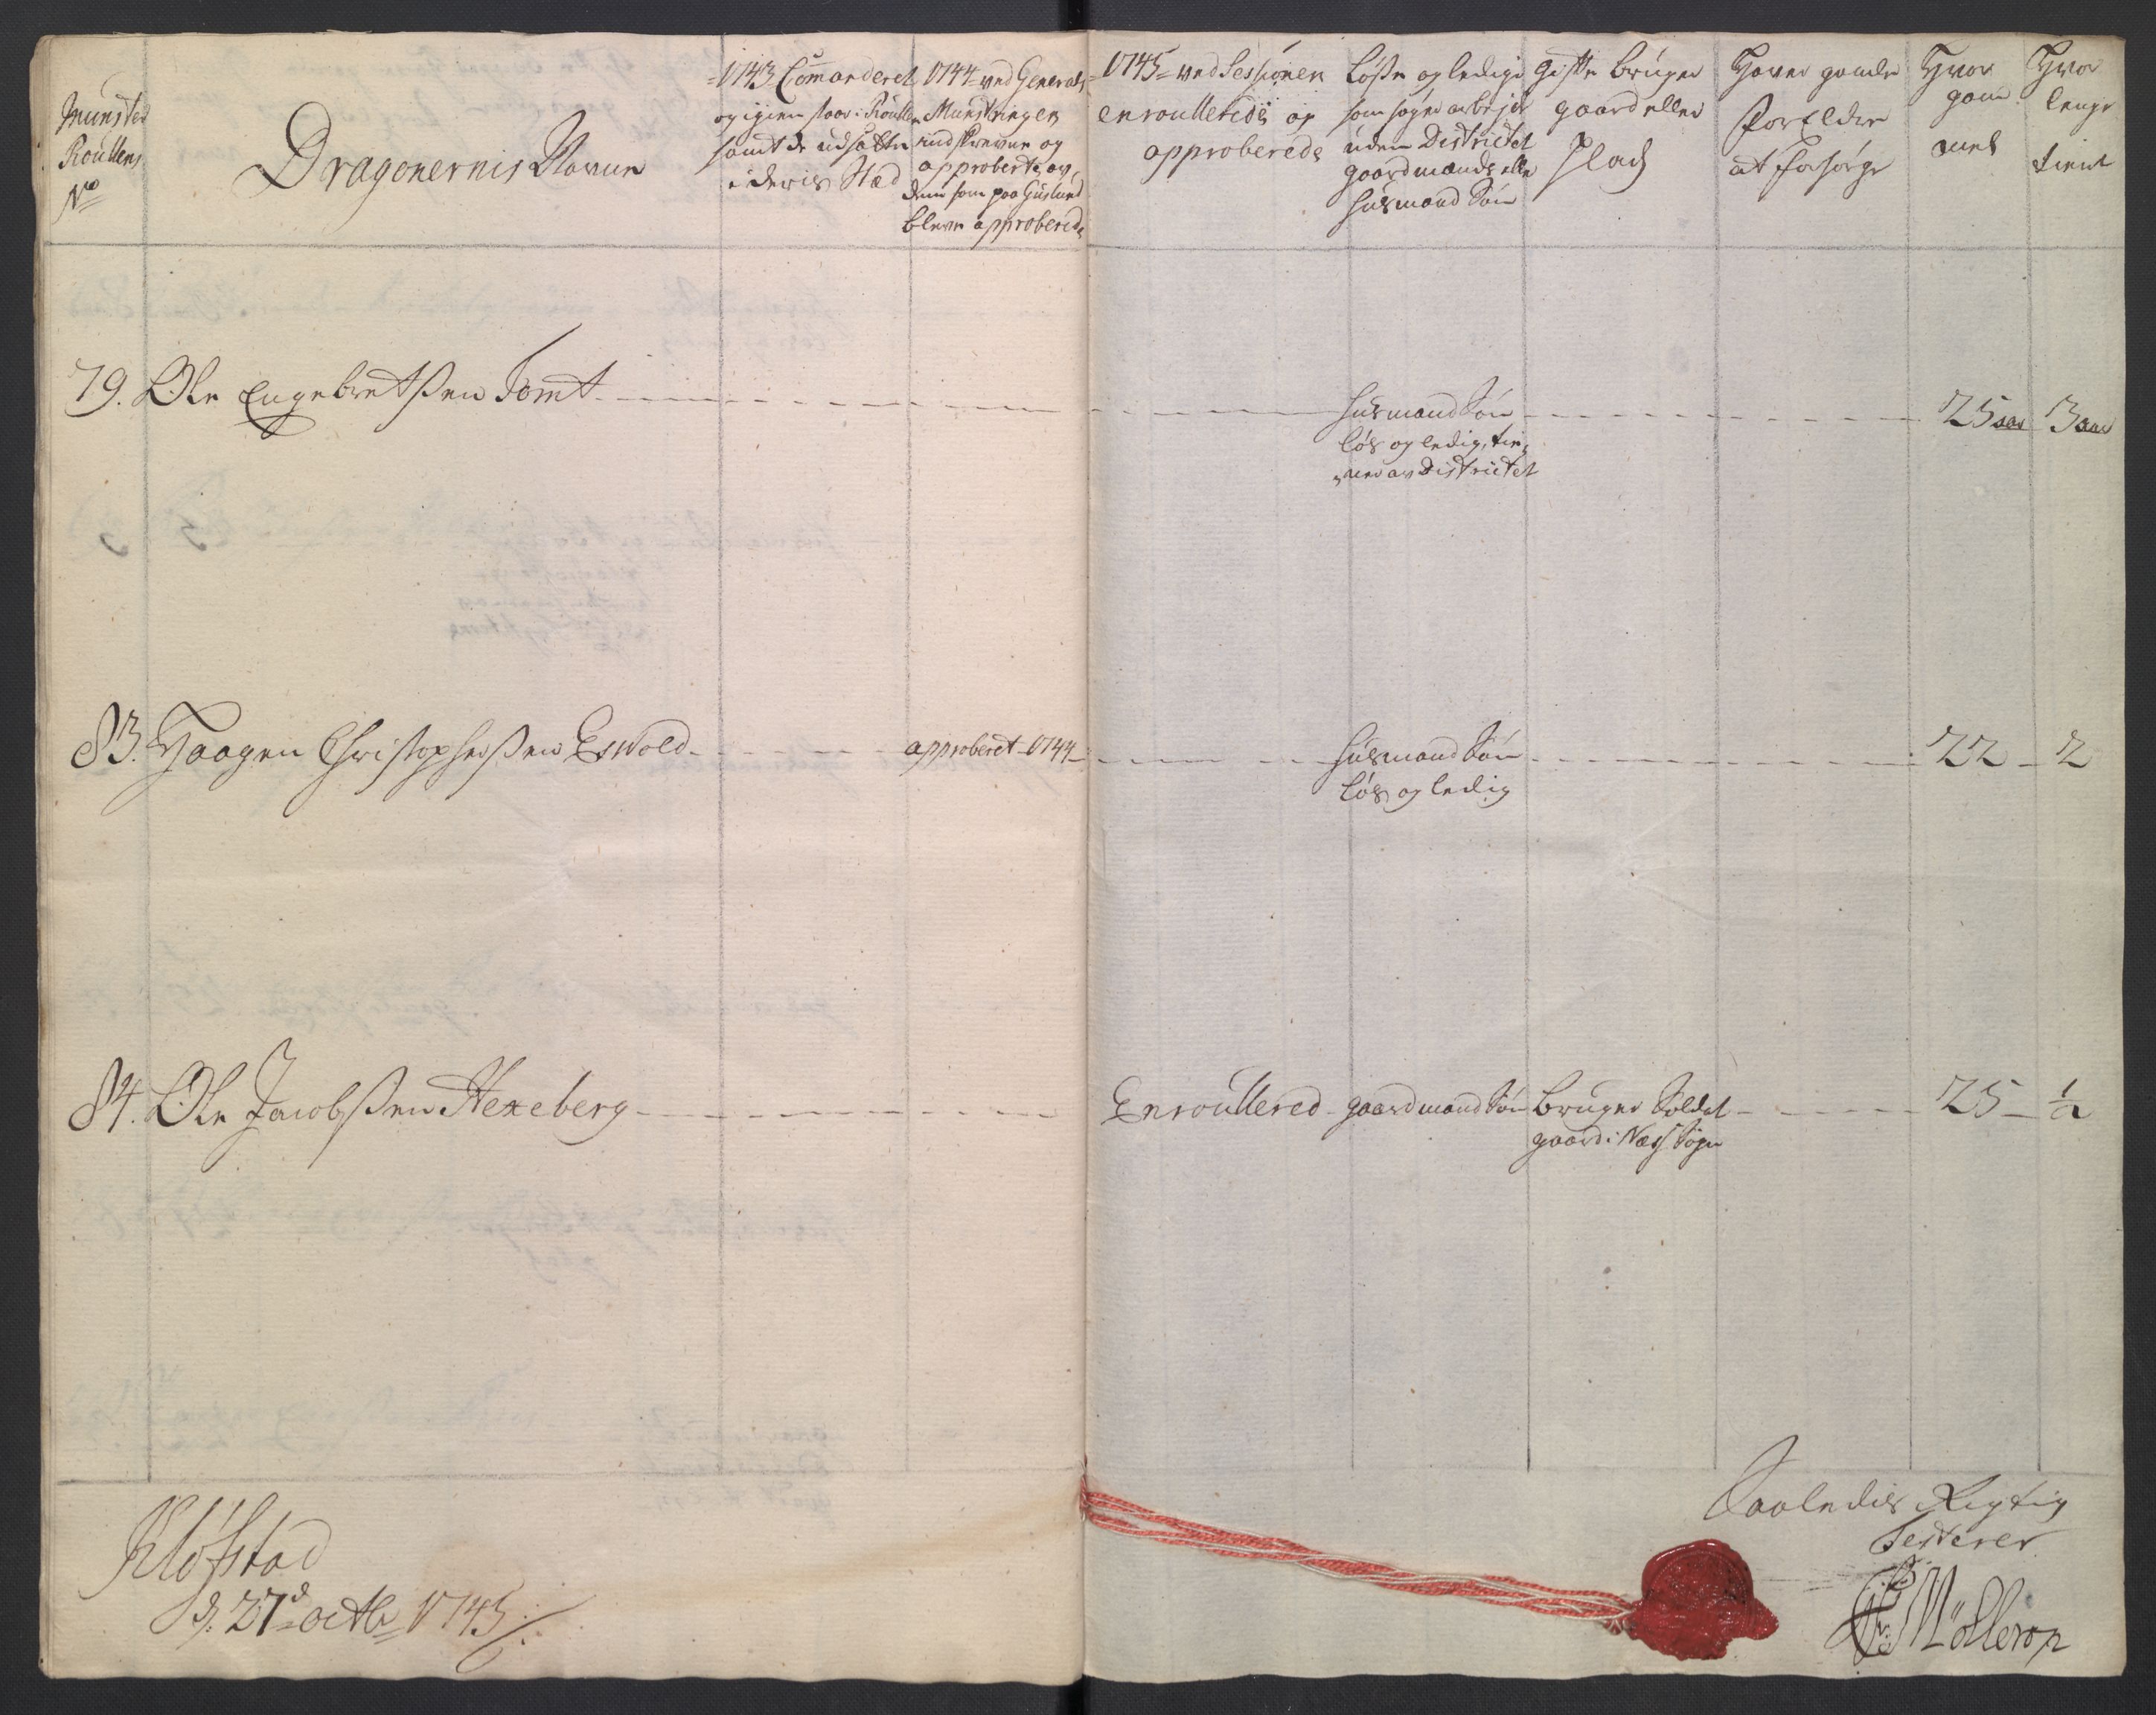 Munster
Roullens
No
Dragonernis Navne
1743 Comanderet
og igien staar i Roullen
samt de udsatte
i deris Stæd
1744 ved General
Munstringen
indskrevne og
approberte, og
dem som paa Guslund
bleve approberede
1745 ved Sessionen
enroulleride og
approberede
Løse og ledige
som søger arbejde
uden Districtet
gaardmands eller
huusmand Søn
Gifte bruger
gaard eller
Plads
Haver gamle
Forældre
at forsørge
Hvor
gam
mel
Hvor
lenge
tient
79. Ole Engebretsen Tomt
huusmand Søn
løs og ledig, tie
ner av Districtet
25 aar 3 aar
83. Haagen Christophersen Eswold
approberet 1744
huusmand Søn
løs og ledig
22 2
84. Ole Jacobsen Hexeberg
Enroullered gaardmand Søn bruger Soldat
gaard i Næss Sogn
25 ½
Kløfstad
d. 27d octbr 1745
Saaledis Rigtig
Testerer
Möllerop